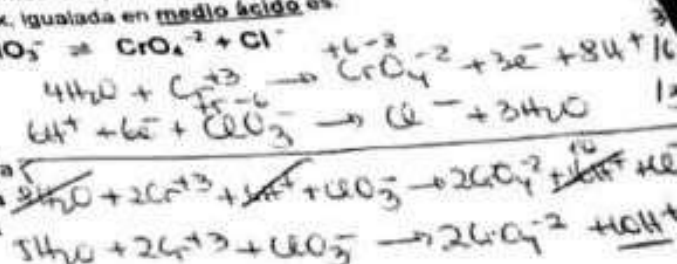 x, igualada en medio ácido es:
lO₃⁻ ⇌ CrO₄⁻² + Cl⁻
+6-8
4H₂O + Cr⁺³ → CrO₄⁻² + 3e⁻ + 8H⁺
6H⁺ + 6e⁻ + ClO₃⁻ → Cl⁻ + 3H₂O
8H₂O + 2Cr⁺³ + 6H⁺ + ClO₃⁻ → 2CrO₄⁻² + 16H⁺ + Cl⁻
5H₂O + 2Cr⁺³ + ClO₃⁻ → 2CrO₄⁻² + 10H⁺